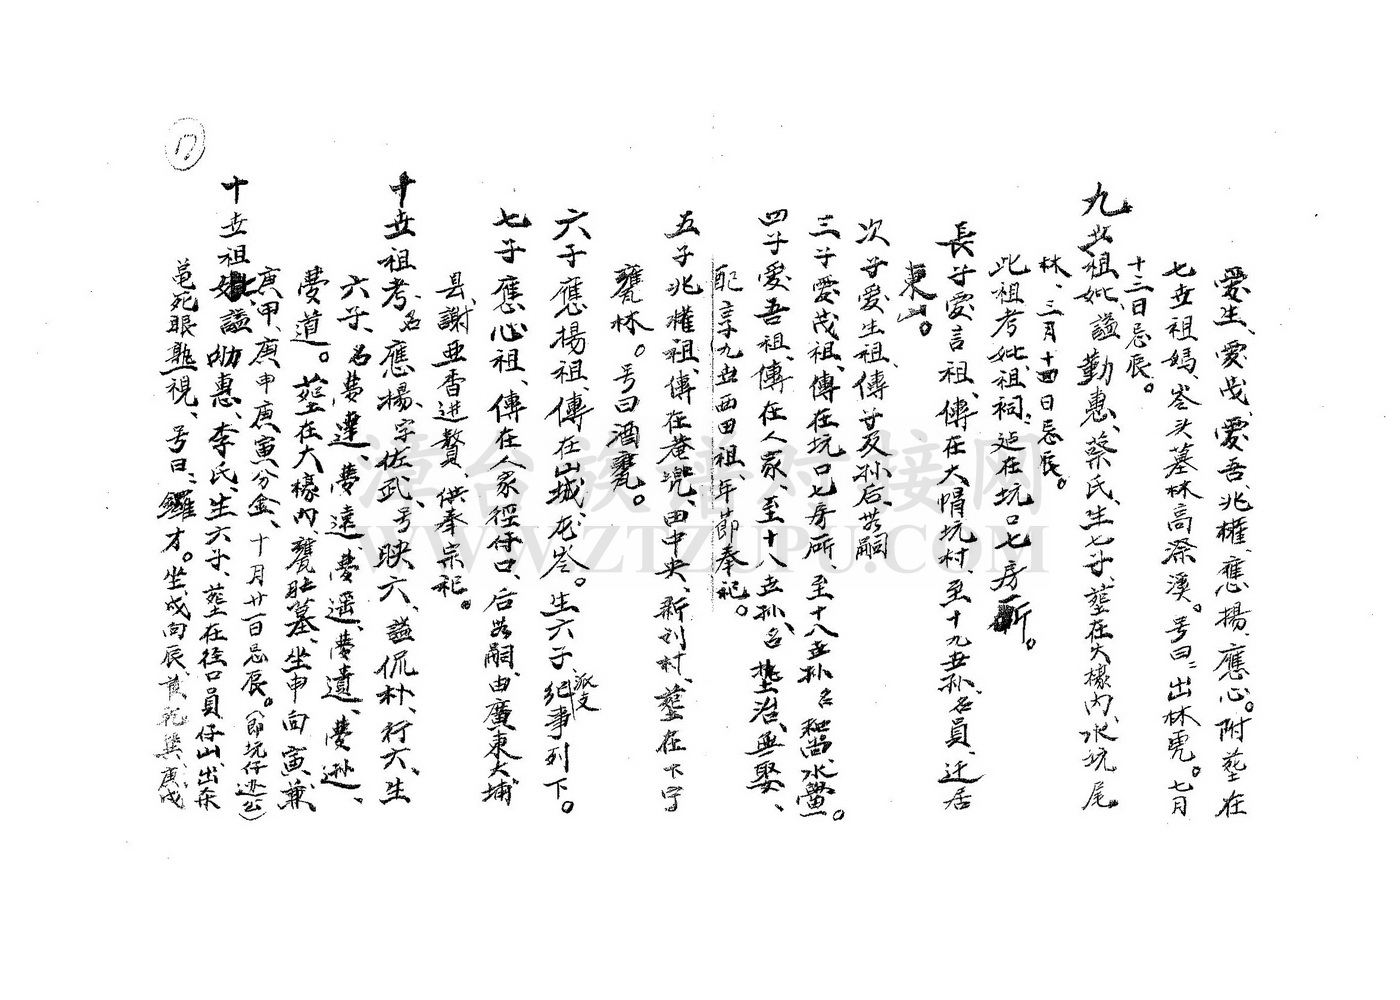 愛生、愛茂、愛吾、兆權、應揚、應心。附塟在
七世祖媽、岺头墓林高漈溪。号曰：出林虎。七月
十三日忌辰。
九世祖妣、諡勤惠、蔡氏、生七子、塟在大檺内、水坑尾
林、三月十四日忌辰。
此祖考妣、祖祠：迠在坑口七房一所。
長子愛言祖、傳在大帽坑村、至十九世孙、名員、迁居
東山。
次子愛生祖、傳子及孙后、若嗣
三子愛茂祖、傳在坑口七房所、至十八世孙、名和尚水
四子愛吾祖、傳在人家、至十八世孙、名治、無娶、
配享九世西田祖、年節奉祀。
五子兆權祖、傳在菴兠、田中央、新刘村、塟在下宁
甕林。号曰酒甕。
六子應揚祖、傳在山城、龙岺。生六子、派支紀事列下。
七子應心祖、傳在人家徑仔口、后若嗣、由廣東大埔
县、謝亜香进贅、供奉宗祀。
十世祖考、名應揚、字佐武、号映六、諡侃朴、行六、生
六子、名夢達、夢遠、夢遥、夢遺、夢遜、
夢道。塟在大檺内、甕肚墓、坐申向寅、兼
庚甲、庚申庚寅分金、十月廿一日忌辰。（即坑仔边公）
十世祖妣諡劬惠、李氏、生六子、塟在徑口員仔山、出
黽死眼熟視、号曰：鑼才。坐戌向辰、兼乾巽、庚戌
17
漳台族谱对接网
WWW.ZTZUPU.COM